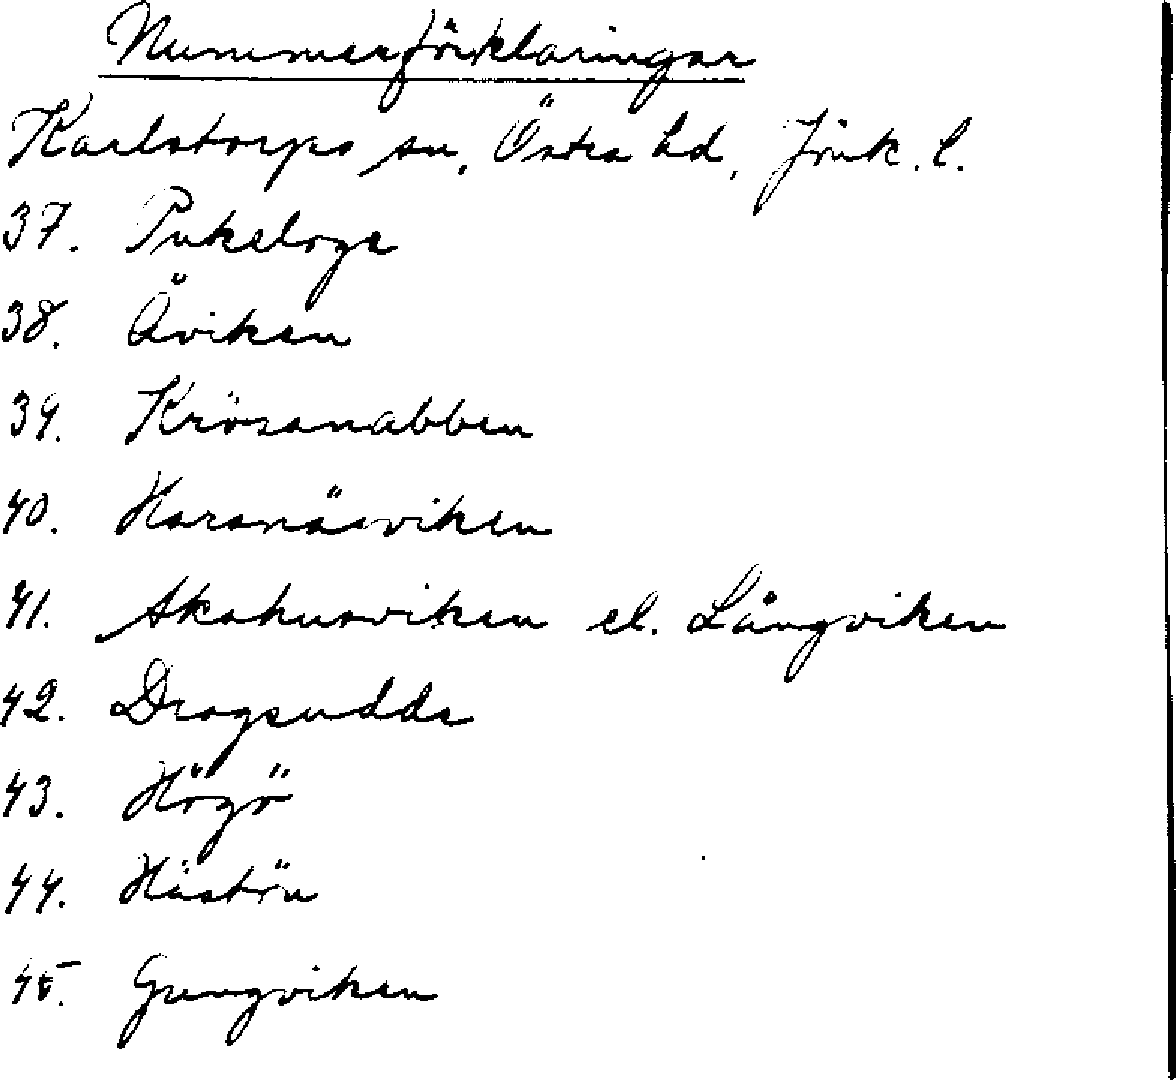 Nummerförklaringar
Karlstorps sn, Östra hd, Jönk. l.
37. Pukeloge
38. Åviken
39. Krösanabben
40. Haranäsviken
41. Skahusviken el. Långviken
42. Dragsudde
43. Högö
44. Hästön
45. Gungviken